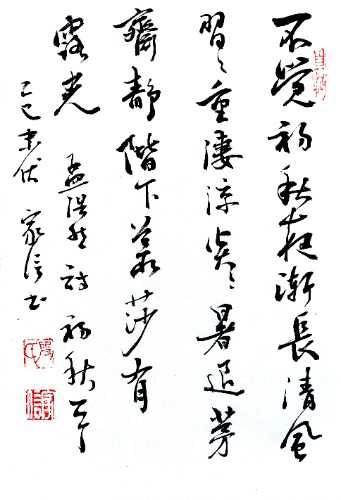 不覺初秋夜漸長清風
習〻重淒涼炎〻暑退茅
齋靜階下叢莎有
露光 孟浩然詩初秋
乙巳末伏 家信书